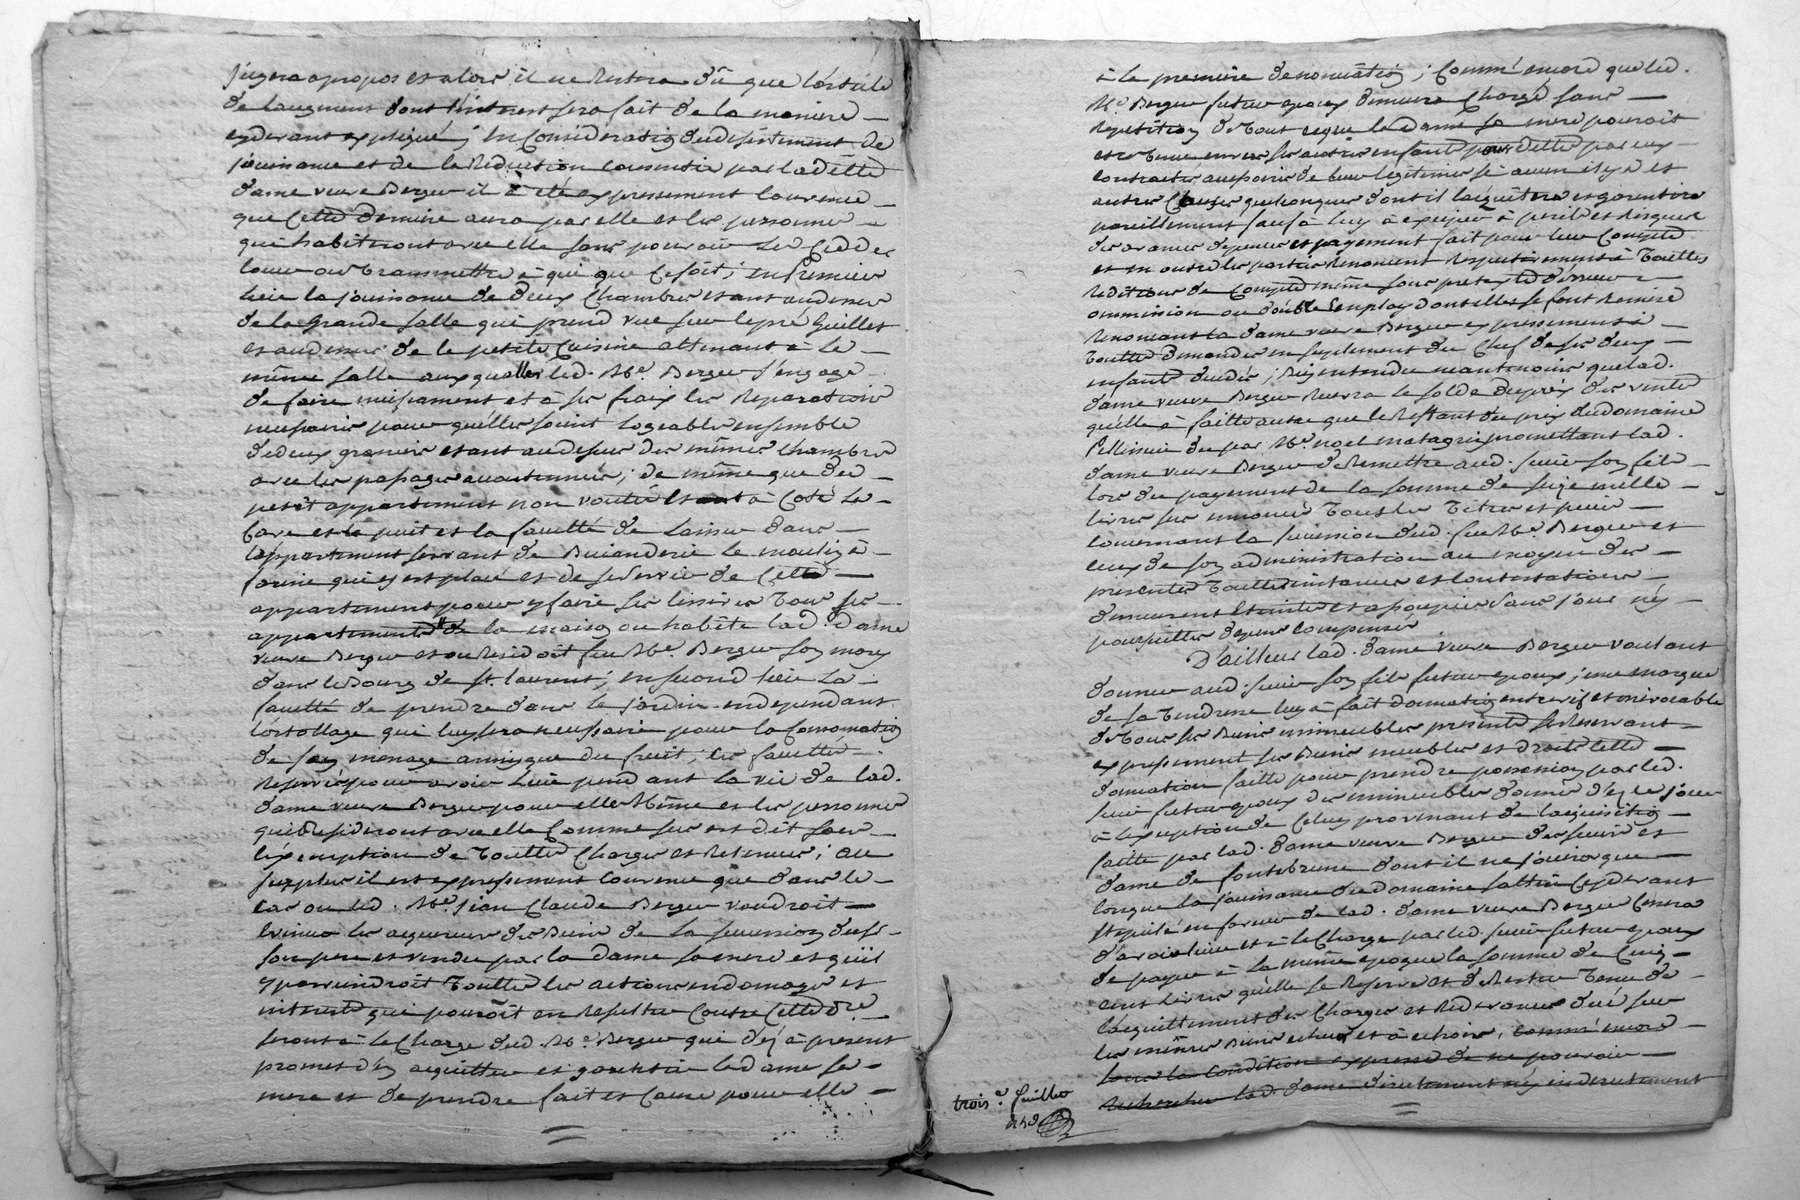 jugera apropos et alors il ne restera dû que l'excede
de laugment dont l'interest sera fait de la maniere
cydevant expliqué, En Considération dudesistement de
jouissance et de la Reduction consentie par ladite
dame veuve Berger il a été expressement convenu
que Cette derniere aura par elle et les personnes
qui habiteront avec elle sans pouvoir les Ceder
louer ou transmettre à qui que ce soit; en premier
lieu la jouissance de deux Chambres etant audessus
de la Grande salle qui prend vue sur le pré Guilles
et audessus de la petite Cuisine attenant à la
même salle auxquelles led. Me. Berger s'engage
de faire incessament et a ses fraix les Reparations
necessaires pour quelles soient logeables ensemble
dedeux greniers etant audessus des mêmes chambres
avec les passages accoutumés; de même que du
petit appartement non vouté etant à Coté la
cave et le puit et la faculté de laisser dans
l'appartement servant de Buanderie le moulin à
farine qui y est placé et de se servir de Cette
appartement pour y faire ses lessives tous ses
appartements de la maison ou habite lad. dame
veuve Berger et ou Residoit feu Me. Berger son mary
dans le Bourg de St. laurent; en second lieu la
faculté de prendre dans le jardin independant
l'ortollage qui luy sera necessaire pour la Consomation
de son menage ainsy que du fruit; les facultés
Reservés pour avoir lieu pendant la vie de lad.
dame veuve Berger pour elle Même et les personnes
qui Resideront avec elle Comme sus est dit sous
l'exemption de toutte Charges et Retenues; au
surplus il est expressement convenu que dans le
cas ou led. Me. jean Claude Berger voudroit
evincer les acquereurs des Biens de la succession dusr.
son pere et vendu par la dame sa mere et qu'il
y parviendroit touttes les actions endomages et
interets qui pouroit en Resulter Contre Cette dre.
seront à la Charge dud. Me. Berger qui dèz à present
promet d'en acquitter et garantir la dame sa
mere et de prendre fait et Cause pour elle
à la premiere denonciation; Comme encore que led.
Me. Berger futur epoux demeure Chargé sans
Repetition de tout ceque la dame sa mere pouroit
etre tenue envers ses autres enfants pour dettes par eux
contractés au sujet de leur legitimes si aucun etoye et
autres Clauses quelconques dont il l'acquittera et garentira
pareillement sauf à luy à exiger à peril et Risques
des avances depenses et payement fait pour leur Compte
et en outre les parties Renoncent Respectivement à touttes
Redition de Compte même sous pretexte d'erreur
ommission ou double employ dont elles se font Remise
Renoncant la dame veuve Berger expressement à
toutte demandes en suplement du Chef de ses deux
enfants dudis; Bien entendu neantmoins que lad.
dame veuve Berger Retirera le solde du prix des ventes
qu'elle à faitte autre que le Restant du prix du domaine
Pellissier du par Me. noel matagrin promettant lad.
dame veuve Berger de Remettre aud. sieur son fils
lors du payement de la somme de seize mille
livres sus enoncée tous les titres et pieces
concernant la succession dud. feu Me. Berger et
ceux de son administration au moyen des
presentes touttes instances et Contestations
demeurent eteintes et assoupies sans jour ny
poursuittes depens compensés
D'ailleur lad. dame veuve Berger voulant
donner aud. sieur son fils futur epoux; une marque
de sa tendresse luy à fait donnation entre vif et irrévocable
de tous ses Biens immeubles presents se Reservant
expressement ses Biens meubles et droits Cette
donnation faitte pour prendre possession par led.
sieur futur epoux des immeubles donnés d'ez ce jour
à l'exception de Celuy provenant de l'acquisition
faitte par lad. dame veuve Berger des sieur et
dame de fontebrune dont il ne jouira que
lorsque la jouissance dudomaine saltin Cydevant
stipulé en faveur de lad. dame veuve Berger Cessera
d'avoir lieu et à la Charge par led. sieur futur epoux
de payer à la même epoque la somme de Cinq
cent livres qu'elle se Reserve et de Rester tenu de
l'acquittement des Charges et Redevances dûes sur
les mêmes Biens echus et à echoir; comme encore
sous la condition expresse de ne pouvoir
rechercher lad. dame directement ny indirectement
trois.e feuillet